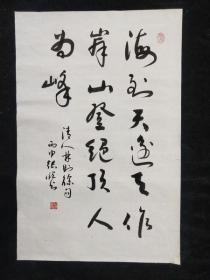 海到天边天作
岸山登绝顶人
为峰
清人林则徐句
丙申